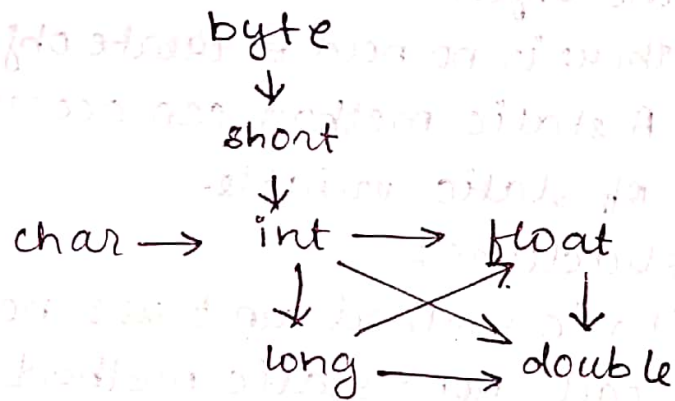 byte
short
char int float
long double